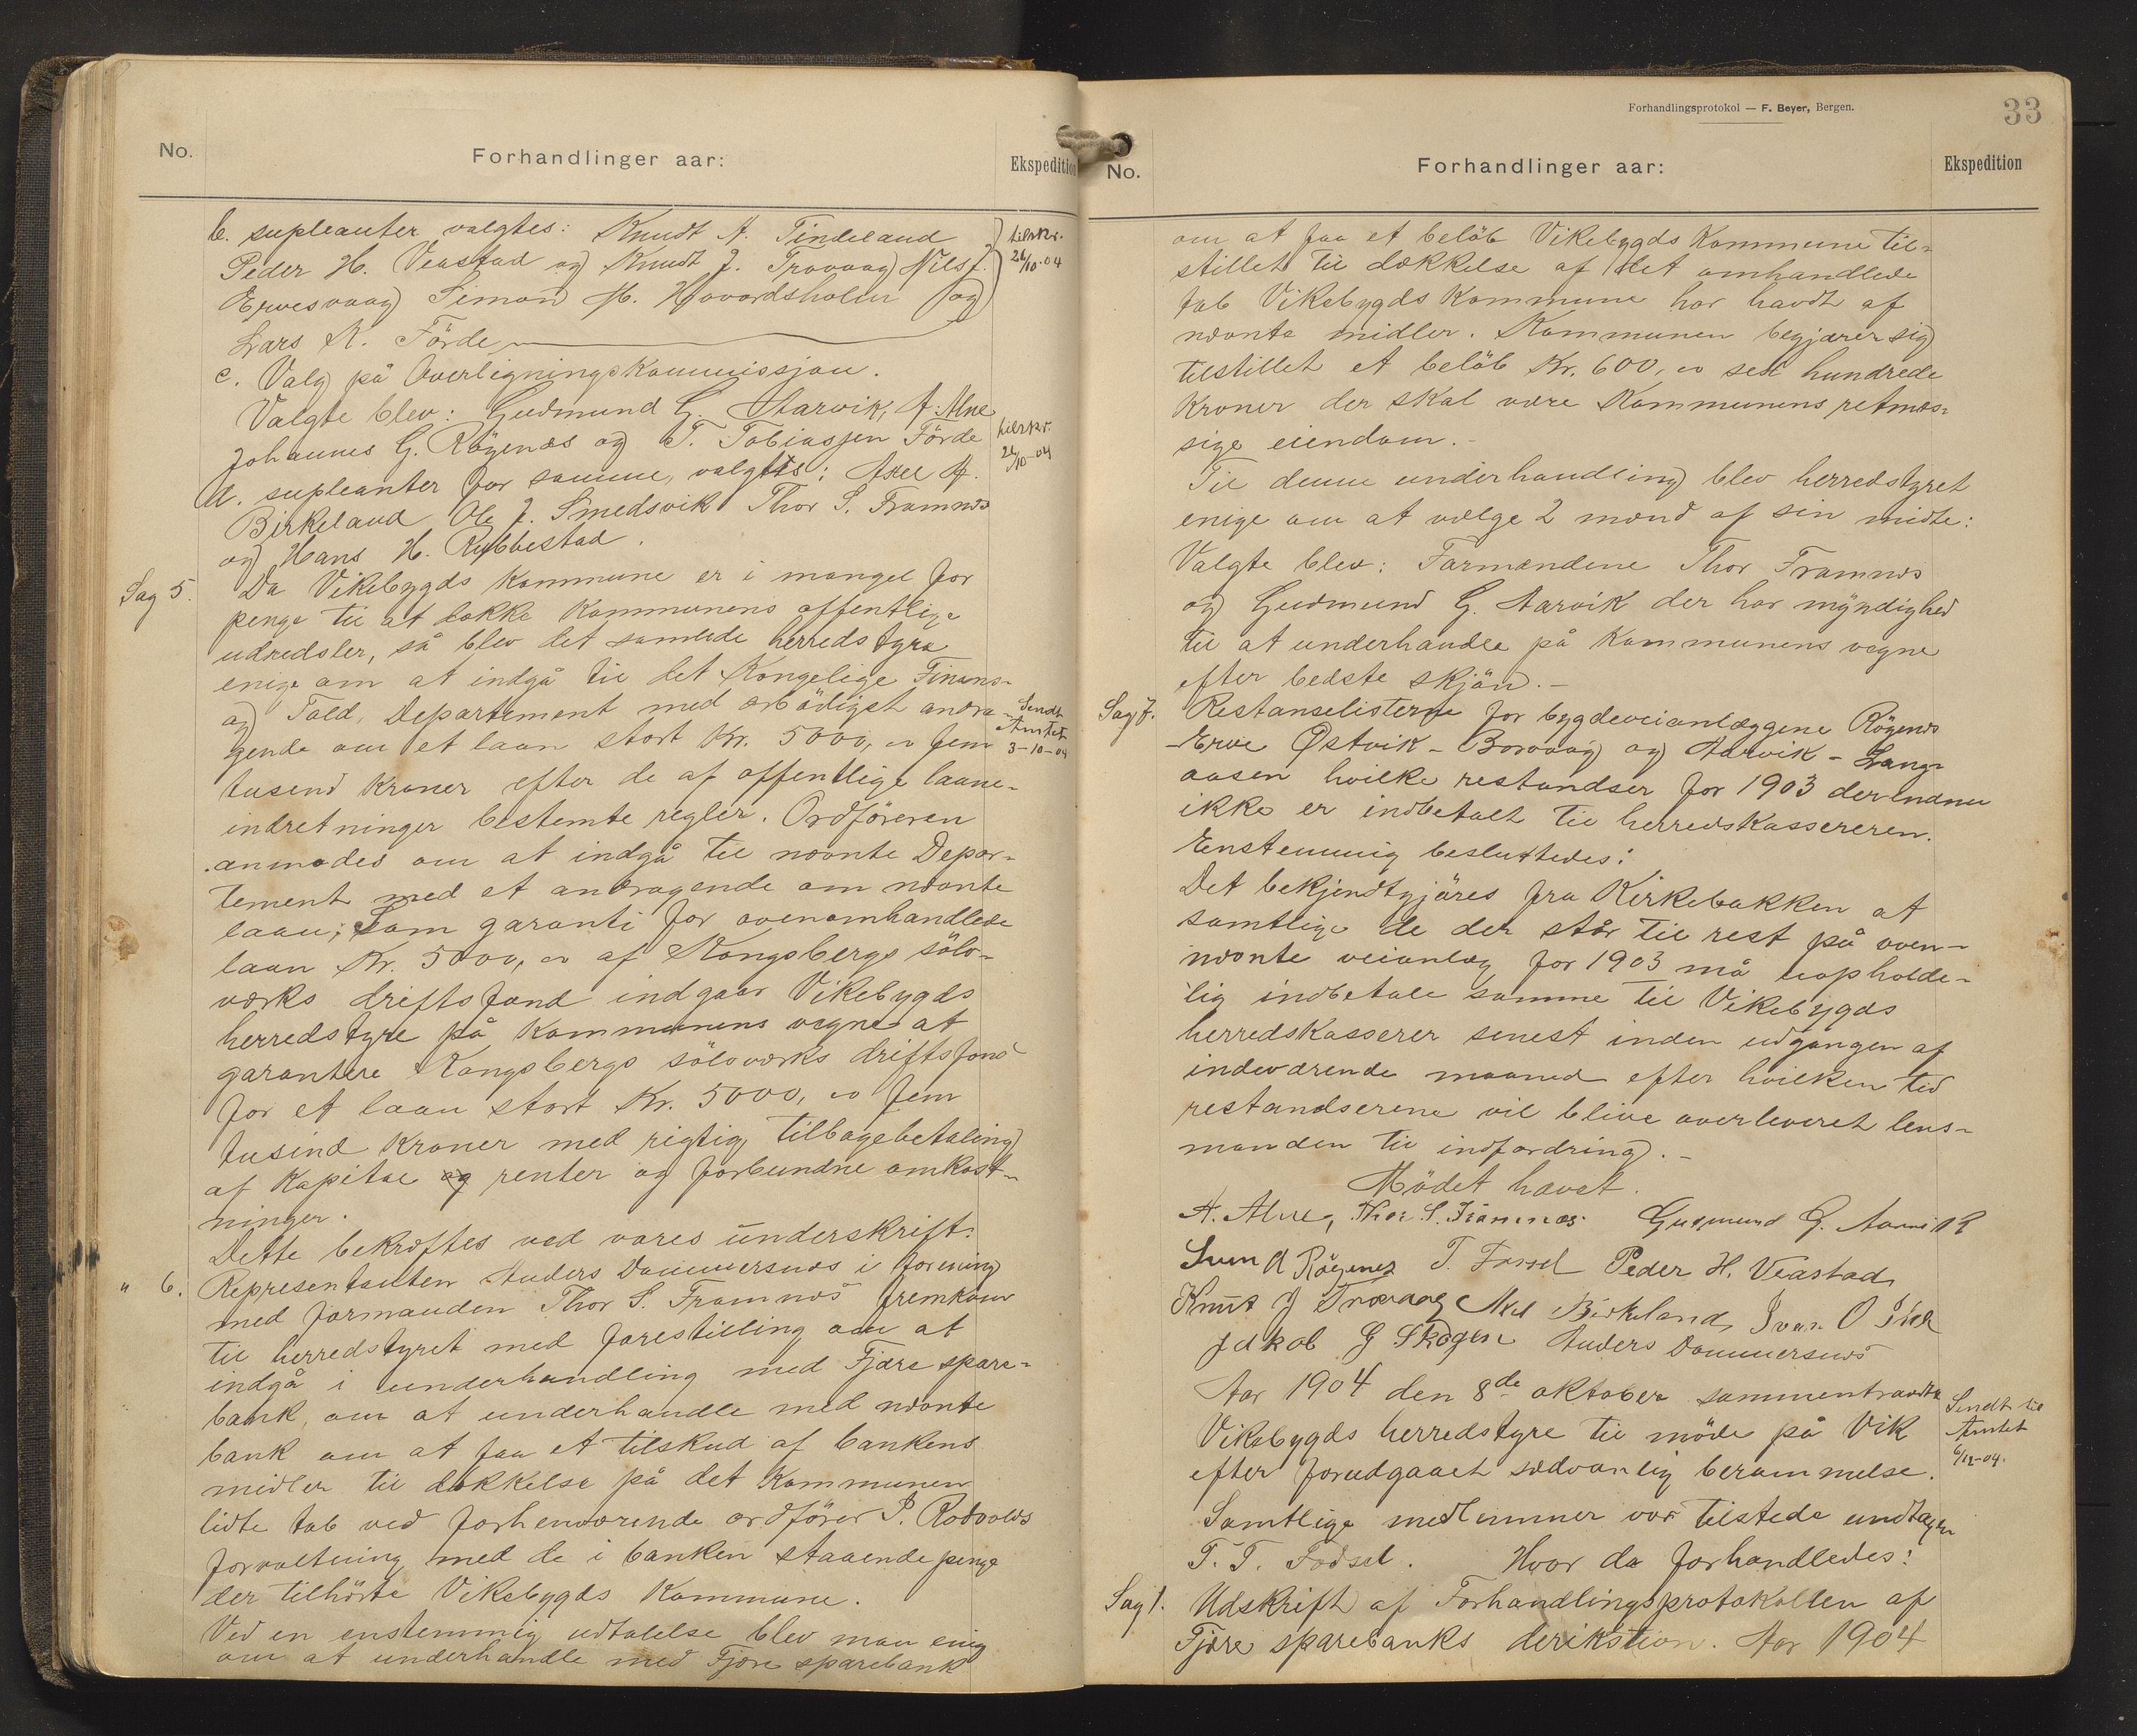 No.
Forhandlinger aar:
Ekspedition
b. supleanter valgtes: Knudt A. Tindeland
Peder H. Veastad og Knudt J. Trovaag Nils J.
Ervesvaag Simon M. Hovardsholm og
Lars K. Förde
tilskr.
26/10-04
c. Valg på Overligningskommissjon.
Valgte blev: Gudmund G. Aarvik, A. Alne
Johannes G. Rögenæs og T. Tobiassen Förde
tilskr.
26/10-04
d. supleanter for samme, valgtes: Axel A.
Birkeland Ole J. Smedsvik Thor S. Framnæs
og Hans H. Rybbestad.
Sag 5.
Da Vikebygds Kommune er i mangel for
penge til at dække Kommunens offentlige
udredsler, så blev det samlede herredstyre
enige om at indgå til det Kongelige Finans-
og Told, Departement med ærbödigst andra-
gende om et laan stort Kr. 5000,00 fem
Sendt
Amtet
3-10-04
tusend kroner efter de af offentlige laane-
indretninger bestemte regler. Ordföreren
anmodes om at indgå til nævnte Depar-
tement med et andragende om nævnte
laan; Som garanti for ovenomhandlede
laan Kr. 5000,00 af Kongsbergs sölv-
værks driftsfond indgaar Vikebygds
herredstyre på Kommunens vegne at
garantere Kongsbergs sölvværks driftsfond
for et laan stort Kr. 5000,00 fem
tusind kroner med rigtig tilbagebetaling
af Kapital og renter og forbundne omkost-
ninger.
Dette bekræftes ved vores underskrift.
" 6.
Representanten Anders Dommersnæs i forening
med formanden Thor S. Framnæs fremkom
til herredstyret med forestilling om at
indgå i underhandling med Fjære spare-
bank, om at underhandle med nævnte
bank om at faa et tilskud af bankens
midler til dækkelse på det Kommunen
lidte tab ved forhenværende ordförer P. Rödvolds
forvaltning med de i banken staaende penge
der tilhörte Vikebygds Kommune.
Ved en enstemmig udtalelse blev man enig
om at underhandle med Fjære sparebank
Forhandlingsprotokol — F. Beyer, Bergen.
33
No.
Forhandlinger aar:
Ekspedition
om at faa et belöb Vikebygds Kommune til-
stillet til dækkelse af det omhandlede
tab Vikebygds Kommune har havdt af
nævnte midler. Kommunen begjærer sig
tilstillet et belöb Kr. 600,00 sex hundrede
Kroner der skal være Kommunens retmæs-
sige eiendom.-
Til denne underhandling blev herredstyret
enige om at vælge 2 mænd af sin midte:
Valgte blev: Formændene Thor Framnæs
og Gudmund G. Aarvik der har myndighed
til at underhandle på Kommunens vegne
efter bedste skjön.-
Sag 7.
Restanselisterne for bygdeveianlæggene Rögenæs
-Erve Østvik - Borvaag og Aarvik - Lang-
aasen hvilke restandser for 1903 der endnu
ikke er indbetalt til herredskassereren.
Enstemmig besluttedes:
Det bekjendtgjöres fra Kirkebakken at
samtlige de der står til rest på oven-
nævnte veianlæg for 1903 må uopholde-
lig indbetale samme til Vikebygds
herredskasserer senest inden udgangen af
indeværende maaned efter hvilken tid
restandserene vil blive overleveret lens-
manden til indfordring.-
Mödet hævet.
A. Alne, Thor S. Framnæs. Gudmund G. Aarvik
Svend A Rögenes T. Fossel Peder H. Veastad
Knut J Trovaag Axel Birkeland, Ivar O
Jakob G Skogen Anders Dommersnæs
Aar 1904 den 8de oktober sammentraadte
Vikebygds herredstyre til möde på Vik
efter forudgaaet sædvanlig berammelse.
Sendt til
Amtet
6/12-04.
Samtlige medlemmer var tilstede undtagen
T. T. Fossel. Hvor da forhandledes:
Sag 1.
Udskrift af Forhandlingsprotokollen af
Fjære sparebanks derikstion. Aar 1904